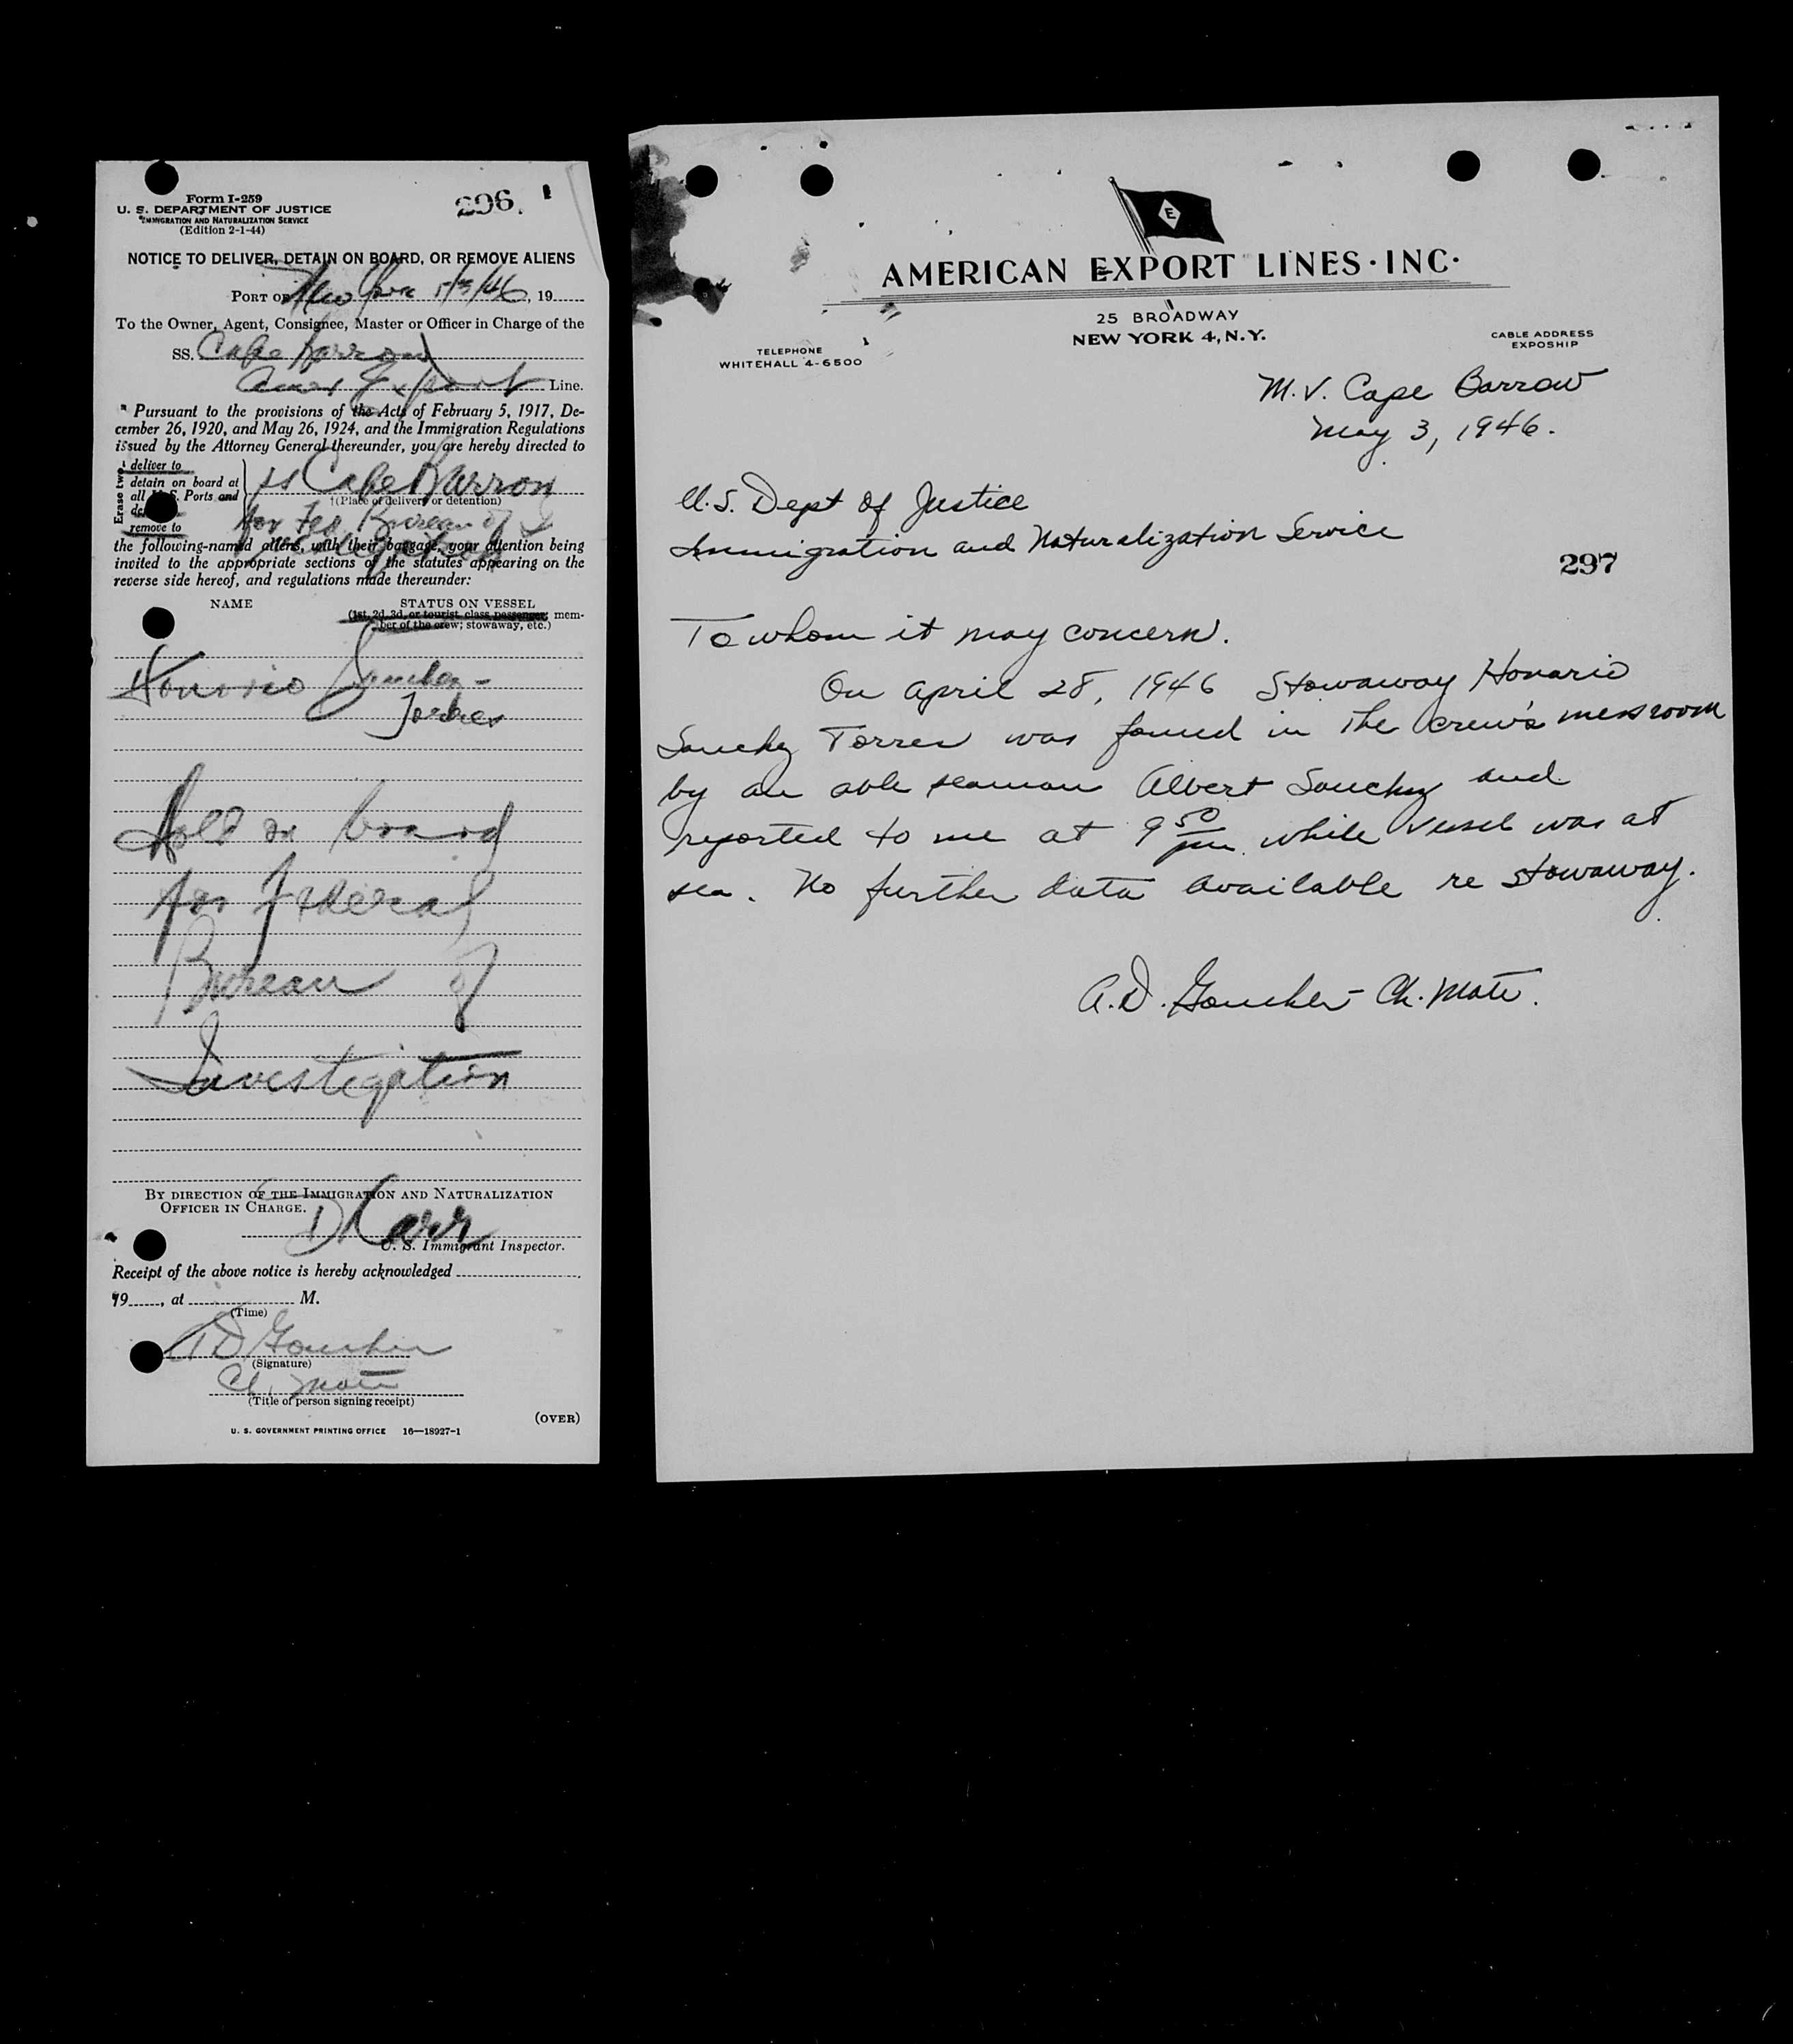 Form I-259
U. S. DEPARTMENT OF JUSTICE
IMMIGRATION AND NATURALIZATION SERVICE
(Edition 2-1-44)
296
NOTICE TO DELIVER, DETAIN ON BOARD, OR REMOVE ALIENS
PORT OF New York 5/3/46, 19
To the Owner, Agent, Consignee, Master or Officer in Charge of the
SS. Cape Barrow
Amer Export Line.
Pursuant to the provisions of the Acts of February 5, 1917, De-
cember 26, 1920, and May 26, 1924, and the Immigration Regulations
issued by the Attorney General thereunder, you are hereby directed to
Erase two
deliver to
detain on board at
all U.S. Ports and
remove to
SS Cape Barrow
†(Place of delivery or detention)
for Fed. Bureau of
Investigation
the following-named aliens, with their baggage, your attention being
invited to the appropriate sections of the statutes appearing on the
reverse side hereof, and regulations made thereunder:
NAME STATUS ON VESSEL
(1st, 2d, 3d, or tourist class passenger; mem-
ber of the crew; stowaway, etc.)
Honorio Sanchez-
Torres
Hold on board
for Federal
Bureau of
Investigation
BY DIRECTION OF THE IMMIGRATION AND NATURALIZATION
OFFICER IN CHARGE.
D Carr
U. S. Immigrant Inspector.
Receipt of the above notice is hereby acknowledged
19, at M.
(Time)
A D Goucher
(Signature)
Ch. Mate
(Title of person signing receipt)
(OVER)
U. S. GOVERNMENT PRINTING OFFICE 16—18927-1
E
AMERICAN EXPORT LINES·INC·
25 BROADWAY
NEW YORK 4, N.Y.
TELEPHONE
WHITEHALL 4-6500
CABLE ADDRESS
EXPOSHIP
M.V. Cape Barrow
May 3, 1946.
U.S. Dept of Justice
Immigration and Naturalization Service
297
To whom it may concern.
On April 28, 1946 Stowaway Honario
Sanchez Torres was found in the crew's messroom
by an able seaman Albert Sanchez and
reported to me at 9 50 pm. while vessel was at
sea. No further data available re stowaway.
A.D. Goucher Ch. Mate.